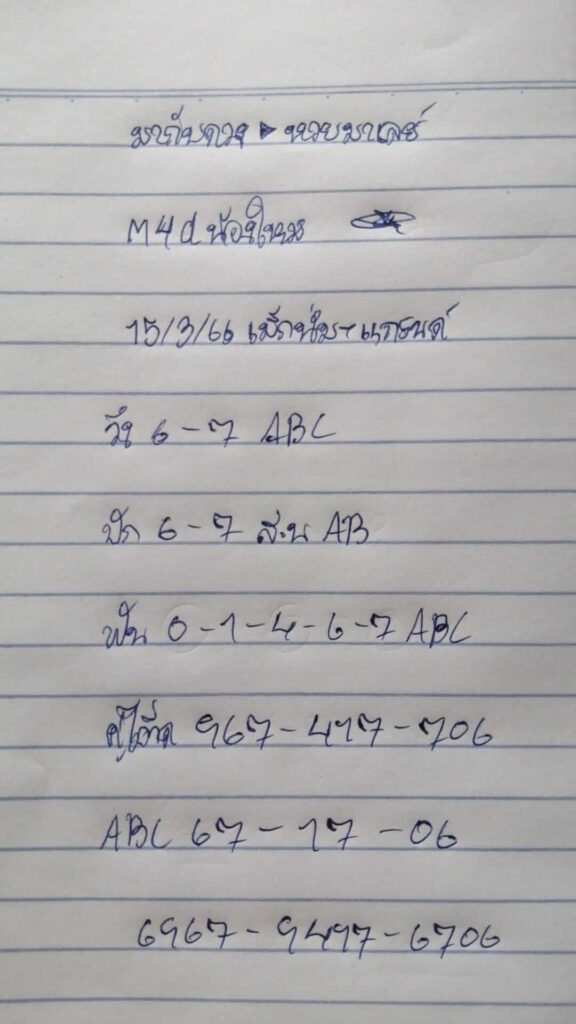 มากับดวง ▶ หวยมาเลย์
M4d น้องใหม่
15/3/66 แม็กนั่ม-แกรนด์
วิ่ง 6-7 ABC
ปัก 6-7 ส.บ AB
ฟัน 0-1-4-6-7 ABC
967-497-706
ABC 67-17-06
6967-9497-6706